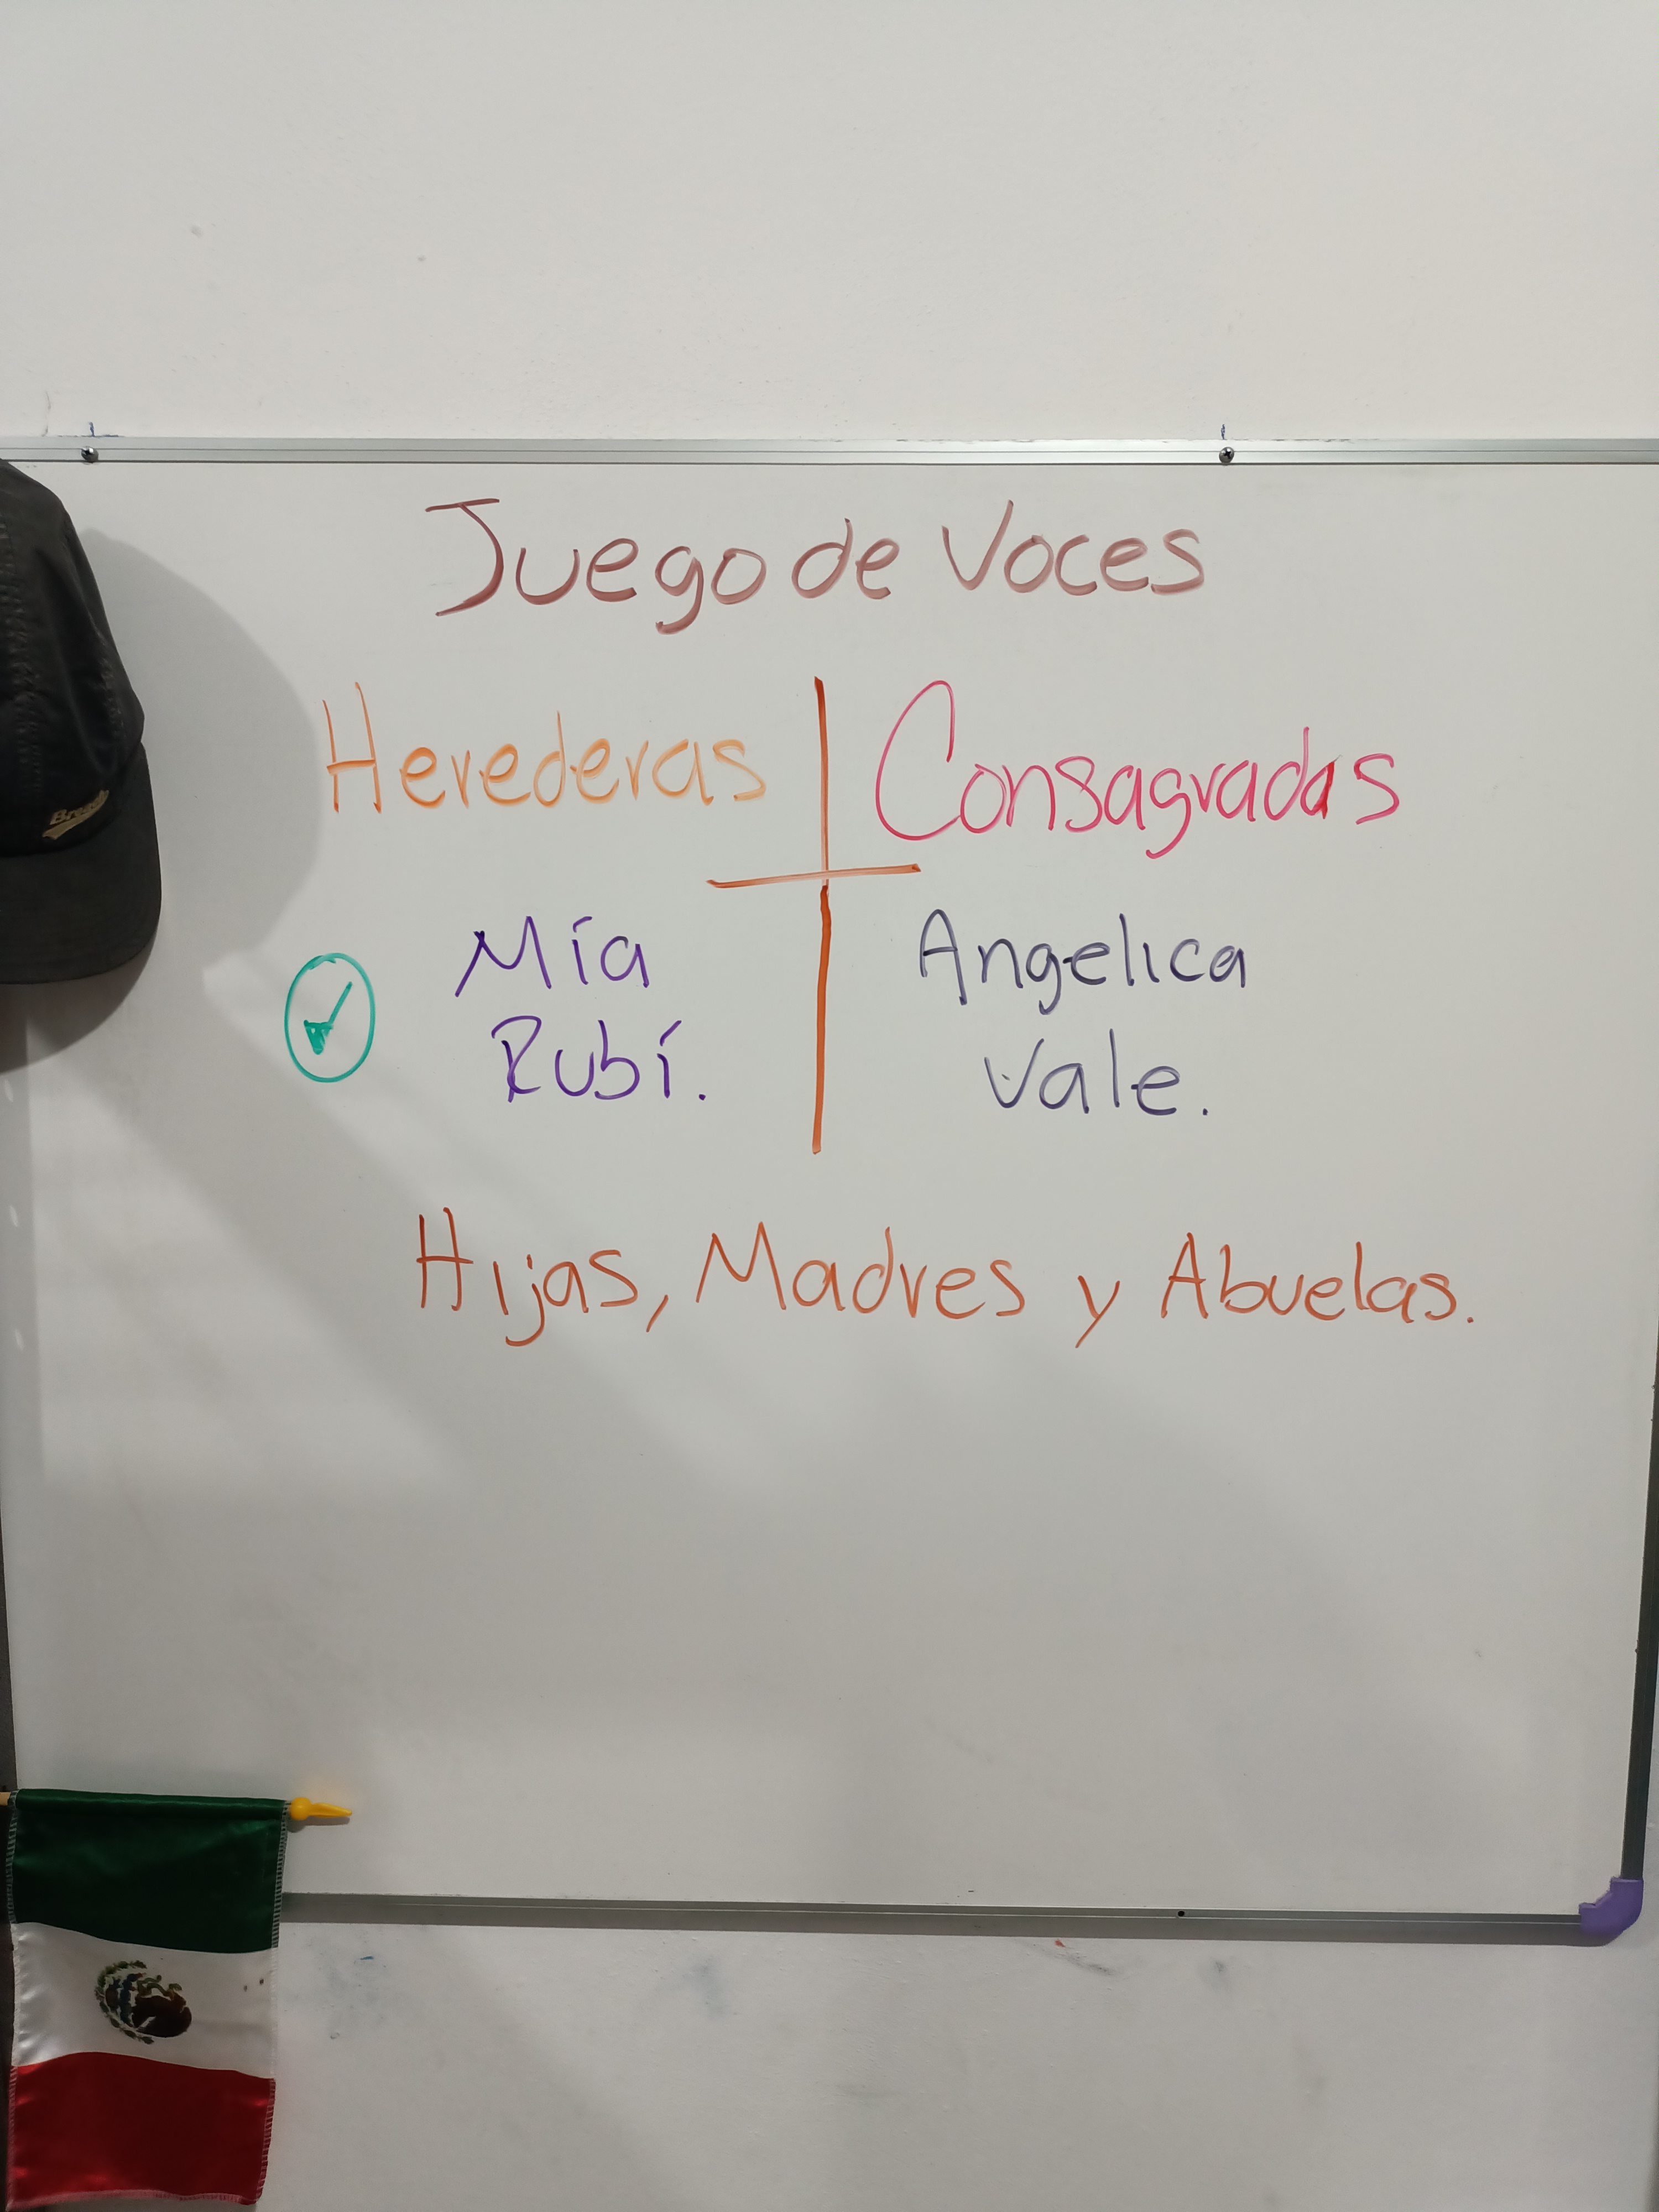 Juego de Voces
Herederas
Consagradas
Mía
Rubí.
Angelica
Vale.
Hijas, Madres y Abuelas.